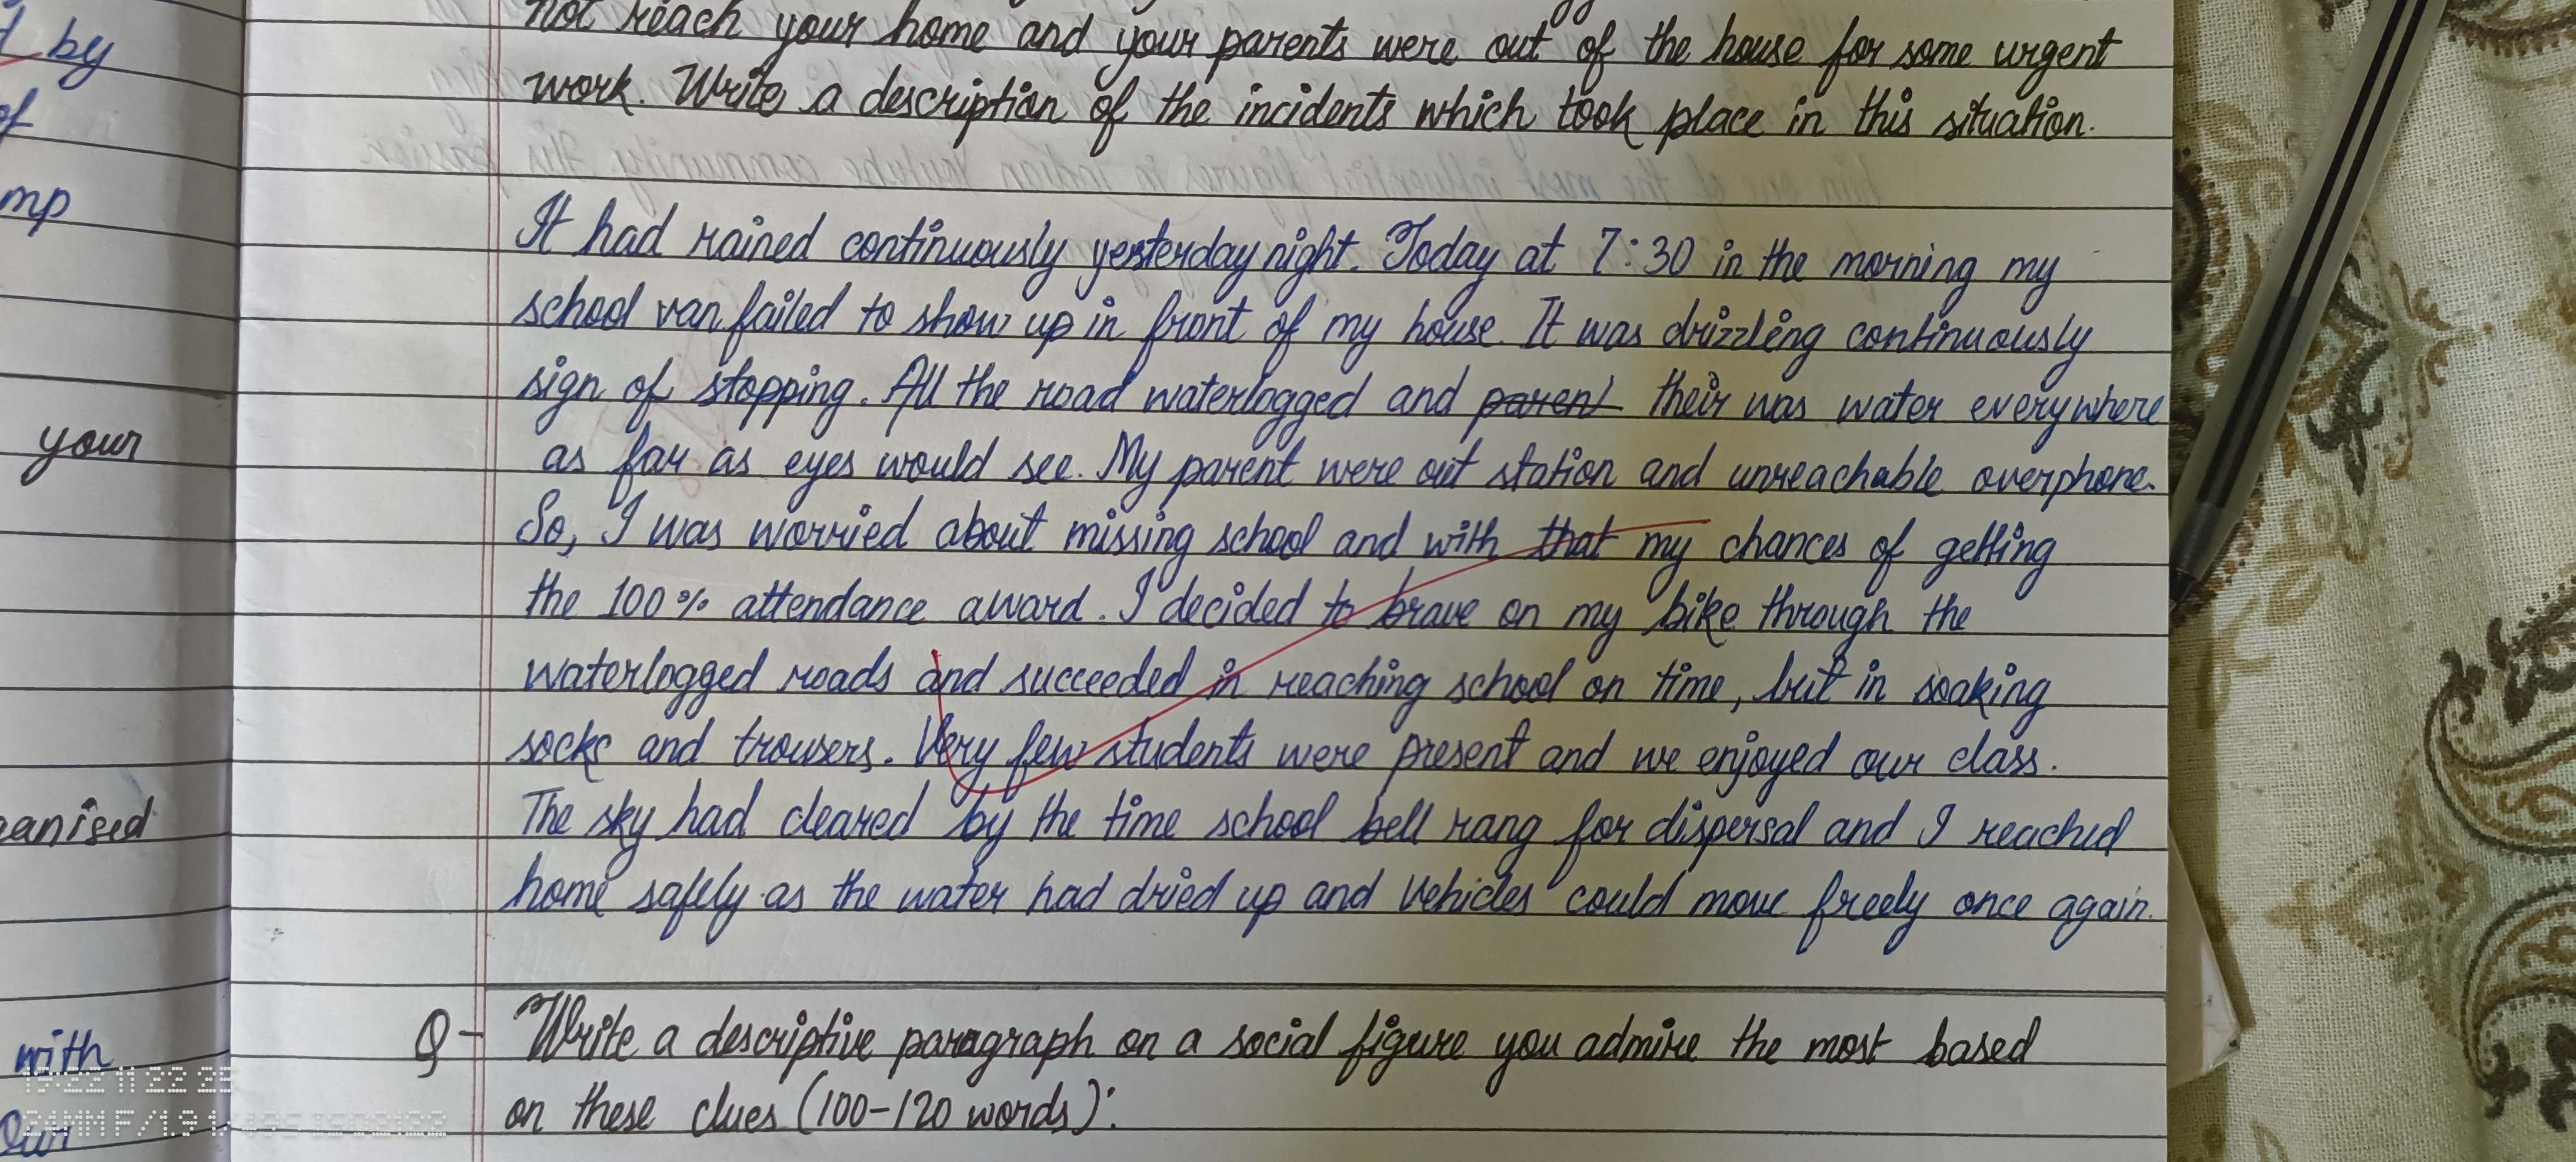 not reach your home and your parents were out of the house for some urgent
work. Write a description of the incidents which took place in this situation.
It had rained continuously yesterday night. Today at 7:30 in the morning my
school van failed to show up in front of my house. It was drizzling continuously
sign of stopping. All the road waterlogged and paren their was water everywhere
as far as eyes would see. My parent were out station and unreachable overphone.
So, I was worried about missing school and with that my chances of getting
the 100% attendance award. I decided to brave on my bike through the
waterlogged roads and succeeded in reaching school on time, but in soaking
socks and trousers. Very few students were present and we enjoyed our class.
The sky had cleared by the time school bell rang for dispersal and I reached
home safely as the water had dried up and vehicles could move freely once again.
Q- Write a descriptive paragraph on a social figure you admire the most based
on these clues (100-120 words):
by
of
mp
your
anised
with
our